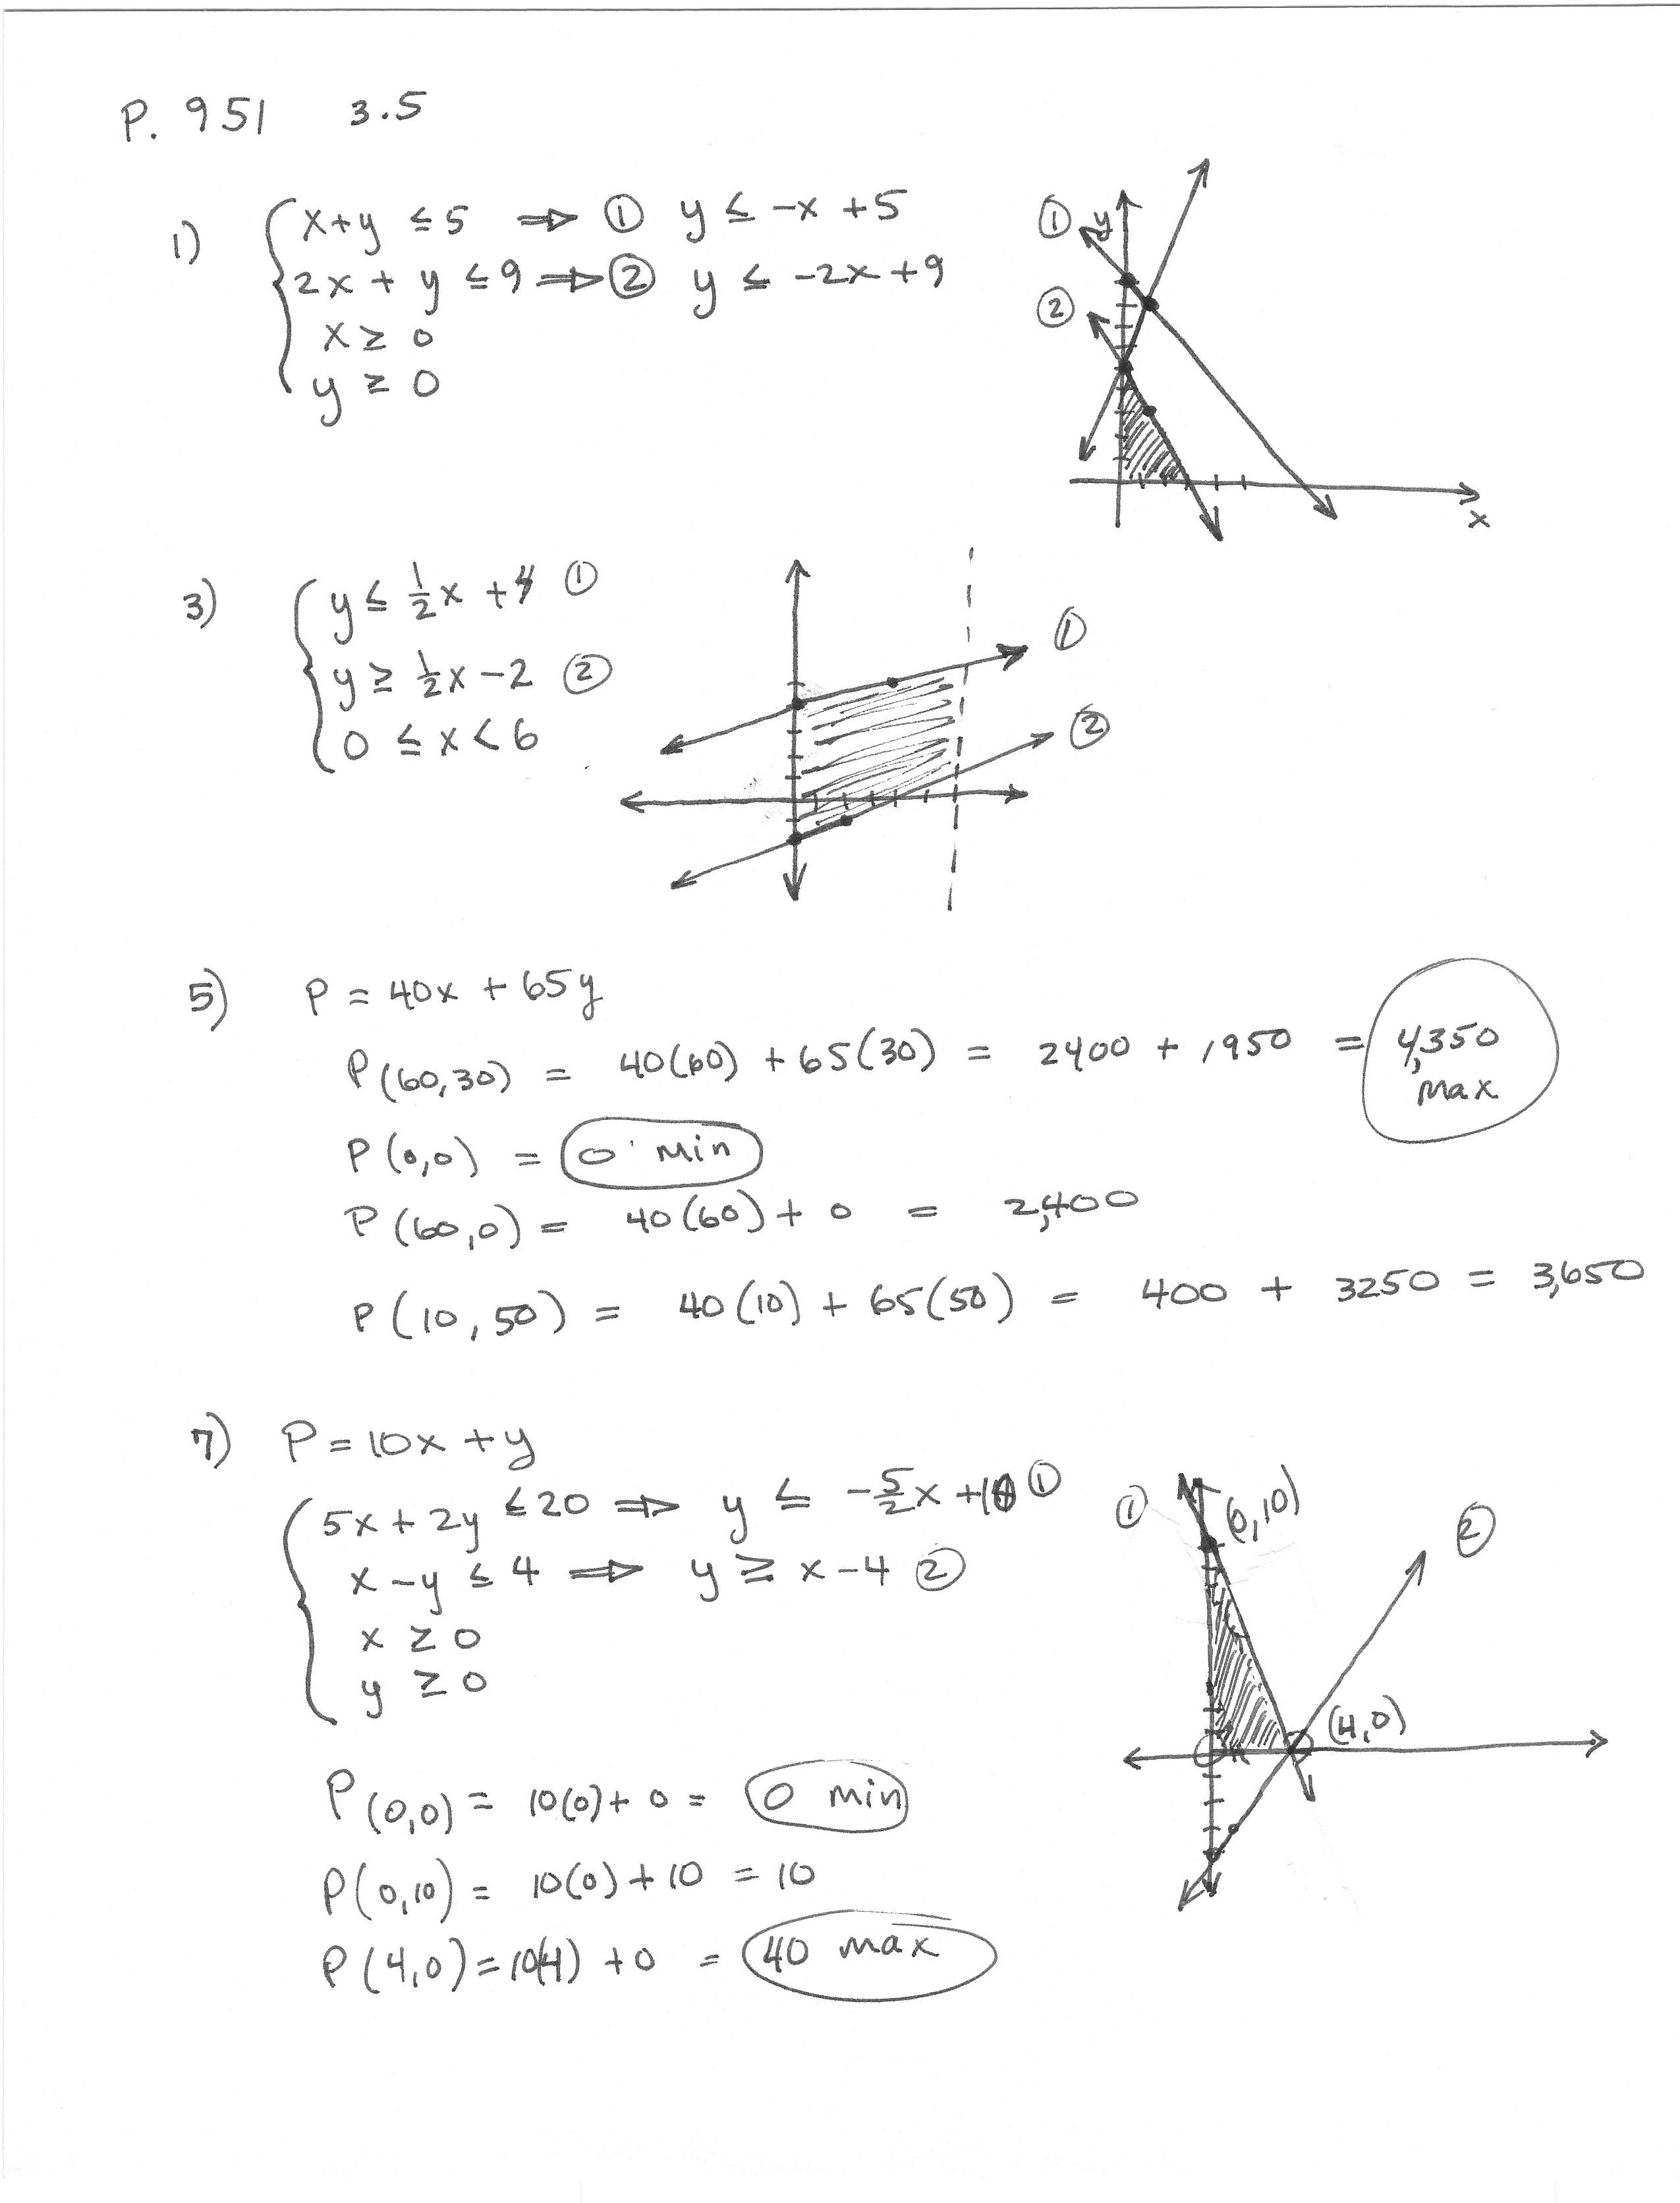 P. 951 3.5
1) x+y ≤ 5 ⇒ ① y ≤ -x +5
2x + y ≤ 9 ⇒ ② y ≤ -2x +9
x ≥ 0
y ≥ 0
① y
②
x
3) y ≤ 1/2 x + 4 ①
y ≥ 1/2 x - 2 ②
0 ≤ x < 6
①
②
5) P = 40x + 65y
P(60,30) = 40(60) + 65(30) = 2400 + 1950 = 4,350 max
P(0,0) = 0 min
P(60,0) = 40(60) + 0 = 2,400
P(10,50) = 40(10) + 65(50) = 400 + 3250 = 3,650
7) P = 10x + y
5x + 2y ≤ 20 ⇒ y ≤ -5/2 x + 10 ①
x - y ≤ 4 ⇒ y ≥ x - 4 ②
x ≥ 0
y ≥ 0
① (0,10) ②
(4,0)
P(0,0) = 10(0) + 0 = 0 min
P(0,10) = 10(0) + 10 = 10
P(4,0) = 10(4) + 0 = 40 max